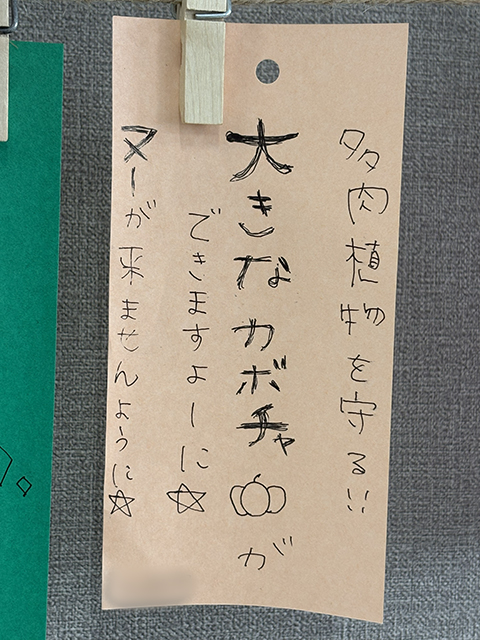 多肉植物を守る!!
大きなカボチャが
できますよーに☆
ヌーが来ませんように☆